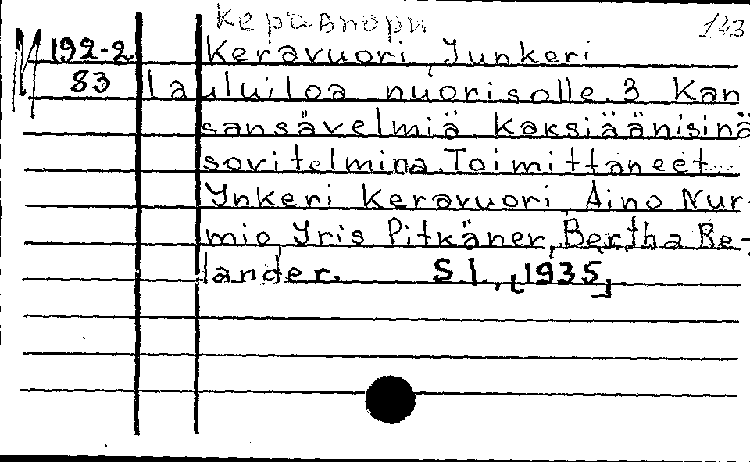 Керавпори 143
М 192-2 Keravuori, Junkeri
83 Lauluiloa nuorisolle. 3 Kan
sansävelmiä kaksiäänisinä
sovitelmina. Toimittaneet
Ynkeri Keravuori, Aino Nur-
mio, Yris Pitkäner, Bertha Re-
lander. S.l., [1935]